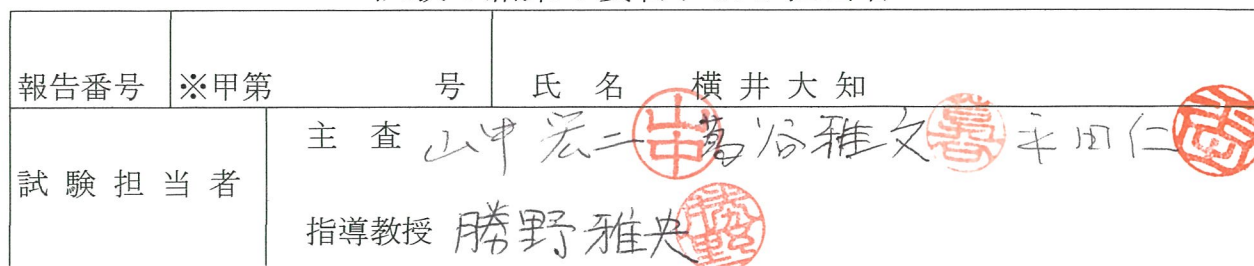 報告番号 ※甲第 号 氏 名 横 井 大 知
試 験 担 当 者
主 査 山中宏二 山中 葛谷雅文 平田仁
指導教授 勝野雅央 勝野